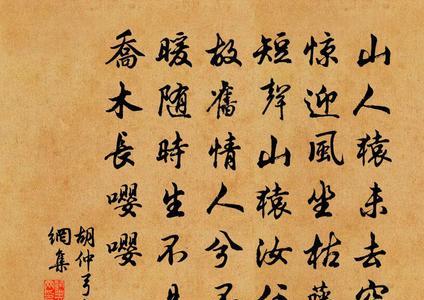 山人猿未去空
惊迎風坐枯
短聲山猿汝
故舊情人兮不
暖随時生不
喬木長嚶嚶
胡仲弓
網集